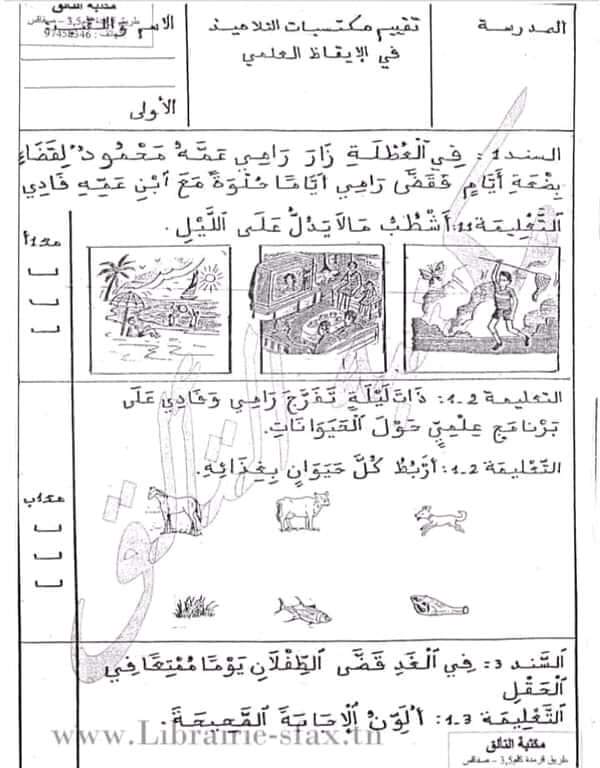 مكتبة التألق
طريق قرمدة كلم3,5 – صفاقس
المدرسة
تقييم مكتسبات التلاميذ
في الإيقاظ العلمي
الاسم و اللقب
الأولى
السند1: فِي الْعُطْلَةِ زَارَ رَامِي عَمَّهُ مَحْمُودْ لِقَضَاءِ
بِضْعَةِ أَيَّامٍ فَقَضَّى رَامِي أَيَّامًا حُلْوَةً مَعَ ابْنِ عَمِّهِ فَادِي
التَّعْلِيمَة 1.1: أَشْطُبُ مَا لَا يَدُلُّ عَلَى اللَّيْلِ.
مع1أ
التعليمة 2-1: ذَاتَ لَيْلَةٍ تَفَرَّجَ رَامِي وَفَادِي عَلَى
بَرْنَامَجٍ عِلْمِيٍّ حَوْلَ الْحَيَوَانَاتِ.
التَّعْلِيمَة 2-1: أَرْبُطُ كُلَّ حَيَوَانٍ بِغِذَائِهِ.
مع1ب
السَّنَد 3: فِي الْغَدِ قَضَّى الطِّفْلَانِ يَوْمًا مُمْتِعًا فِي
الْحَقْلِ
التَّعْلِيمَة 3-1: أُلَوِّنُ الْإِجَابَةَ الصَّحِيحَةَ.
www.Librairie-sfax.tn
مكتبة التألق
طريق قرمدة كلم3,5 – صفاقس